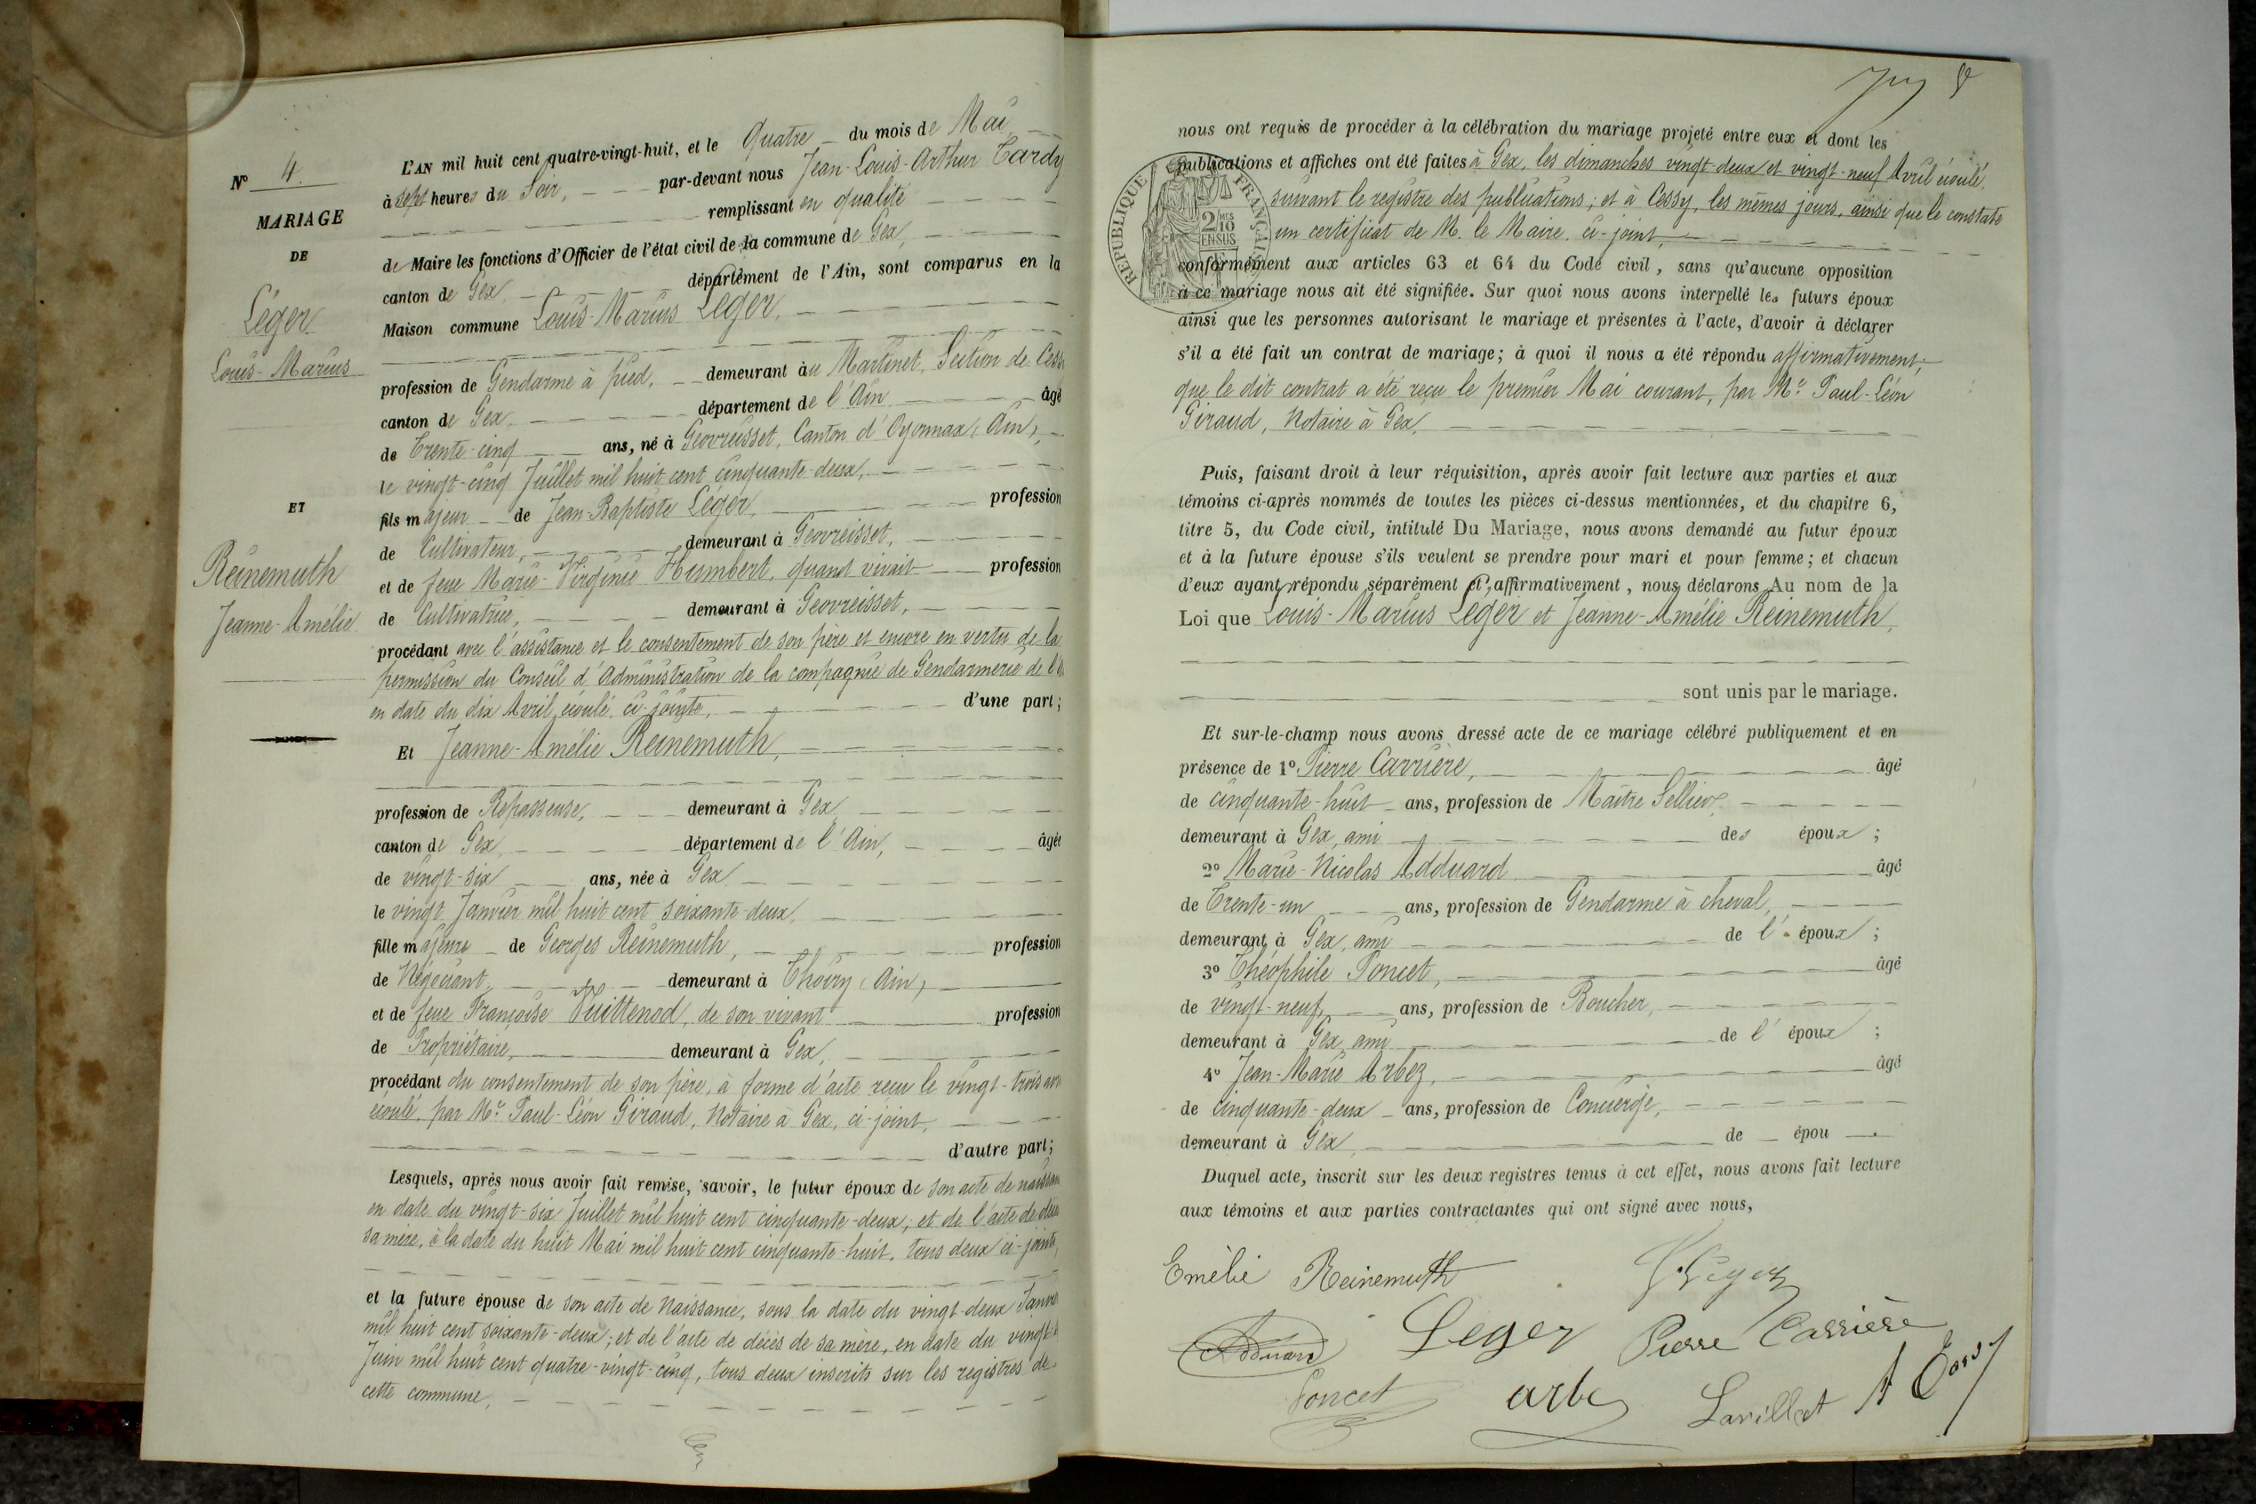 N° 4.
MARIAGE
DE
Léger
Louis-Marius
ET
Reinemuth
Jeanne-Amélie
L'AN mil huit cent quatre-vingt-huit, et le Quatre du mois de Mai
à sept heures du Soir, par-devant nous Jean-Louis-Arthur Tardy
remplissant en qualité
de Maire les fonctions d'Officier de l'état civil de la commune de Gex,
canton de Gex, département de l'Ain, sont comparus en la
Maison commune Louis-Marius Léger,
profession de Gendarme à pied, demeurant au Martinet, Section de Cess
canton de Gex, département de l'Ain âgé
de Trente-cinq ans, né à Geovreisset, Canton d'Oyonnax (Ain),
le vingt-cinq Juillet mil huit cent cinquante-deux,
fils majeur de Jean-Baptiste Léger, profession
de Cultivateur, demeurant à Geovreisset,
et de feue Marie-Virginie Humbert, quand vivait profession
de Cultivatrice, demeurant à Geovreisset,
procédant avec l'assistance et le consentement de son père et encore en vertu de la
permission du Conseil d'Administration de la compagnie de Gendarmerie de l'A
en date du dix Avril écoulé, ci-jointe, d'une part;
Et Jeanne-Amélie Reinemuth,
profession de Repasseuse, demeurant à Gex,
canton de Gex, département de l'Ain, âgée
de vingt-six ans, née à Gex
le vingt Janvier mil huit cent soixante-deux,
fille majeure de Georges Reinemuth, profession
de Négociant, demeurant à Thoiry (Ain),
et de feue Françoise Vuittenod, de son vivant profession
de Propriétaire, demeurant à Gex,
procédant du consentement de son père, à forme d'acte reçu le vingt-trois avr
écoulé, par Me. Paul-Léon Giraud, Notaire à Gex, ci-joint,
d'autre part;
Lesquels, après nous avoir fait remise, savoir, le futur époux de son acte de naissan
en date du vingt-six Juillet mil huit cent cinquante-deux; et de l'acte de décè
sa mère, à la date du huit Mai mil huit cent cinquante-huit, tous deux ci-joints,
et la future épouse de son acte de Naissance, sous la date du vingt-deux Janvi
mil huit cent soixante-deux; et de l'acte de décès de sa mère, en date du vingt
Juin mil huit cent quatre-vingt-cinq, tous deux inscrits sur les registres de
cette commune,
nous ont requis de procéder à la célébration du mariage projeté entre eux et dont les
publications et affiches ont été faites à Gex, les dimanches vingt-deux et vingt-neuf Avril écoulé,
suivant le registre des publications; et à Cessy, les mêmes jours, ainsi que le constate
un certificat de M. le Maire, ci-joint,
REPUBLIQUE FRANÇAISE
2/10MES
EN SUS
conformément aux articles 63 et 64 du Code civil, sans qu'aucune opposition
à ce mariage nous ait été signifiée. Sur quoi nous avons interpellé les futurs époux
ainsi que les personnes autorisant le mariage et présentes à l'acte, d'avoir à déclarer
s'il a été fait un contrat de mariage; à quoi il nous a été répondu affirmativement;
que le dit contrat a été reçu le premier Mai courant, par Me. Paul-Léon
Giraud, Notaire à Gex,
Puis, faisant droit à leur réquisition, après avoir fait lecture aux parties et aux
témoins ci-après nommés de toutes les pièces ci-dessus mentionnées, et du chapitre 6,
titre 5, du Code civil, intitulé Du Mariage, nous avons demandé au futur époux
et à la future épouse s'ils veulent se prendre pour mari et pour femme; et chacun
d'eux ayant répondu séparément et affirmativement, nous déclarons Au nom de la
Loi que Louis-Marius Léger et Jeanne-Amélie Reinemuth,
sont unis par le mariage.
Et sur-le-champ nous avons dressé acte de ce mariage célébré publiquement et en
présence de 1° Pierre Carrière, âgé
de cinquante-huit ans, profession de Maître Sellier,
demeurant à Gex, ami des époux;
2° Marie-Nicolas Addouard âgé
de Trente-un ans, profession de Gendarme à cheval,
demeurant à Gex, ami de l'époux;
3° Théophile Poncet, âgé
de vingt-neuf, ans, profession de Boucher,
demeurant à Gex, ami de l'époux;
4° Jean-Marie Arbez, âgé
de cinquante-deux ans, profession de Concierge,
demeurant à Gex, de épou
Duquel acte, inscrit sur les deux registres tenus à cet effet, nous avons fait lecture
aux témoins et aux parties contractantes qui ont signé avec nous,
Emélie Reinemuth
Leger Pierre Carrière
Poncet Arbez Lavillat